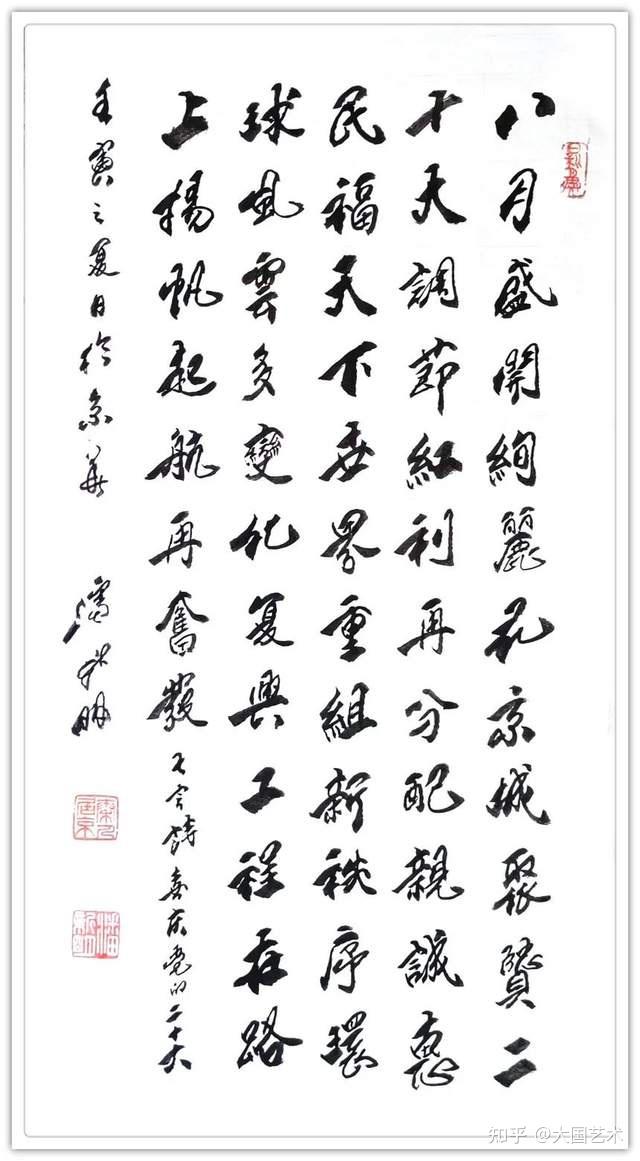 八月盛開絢麗花京城聚賢二
十天調節紅利再分配親誠惠
民福天下世界重組新秩序環
球風雲多變化复興工程在路
上揚帆起航再奮發 七言詩喜庆党的二十大
壬寅之夏日於京華 潘新明
知乎 @大国艺术